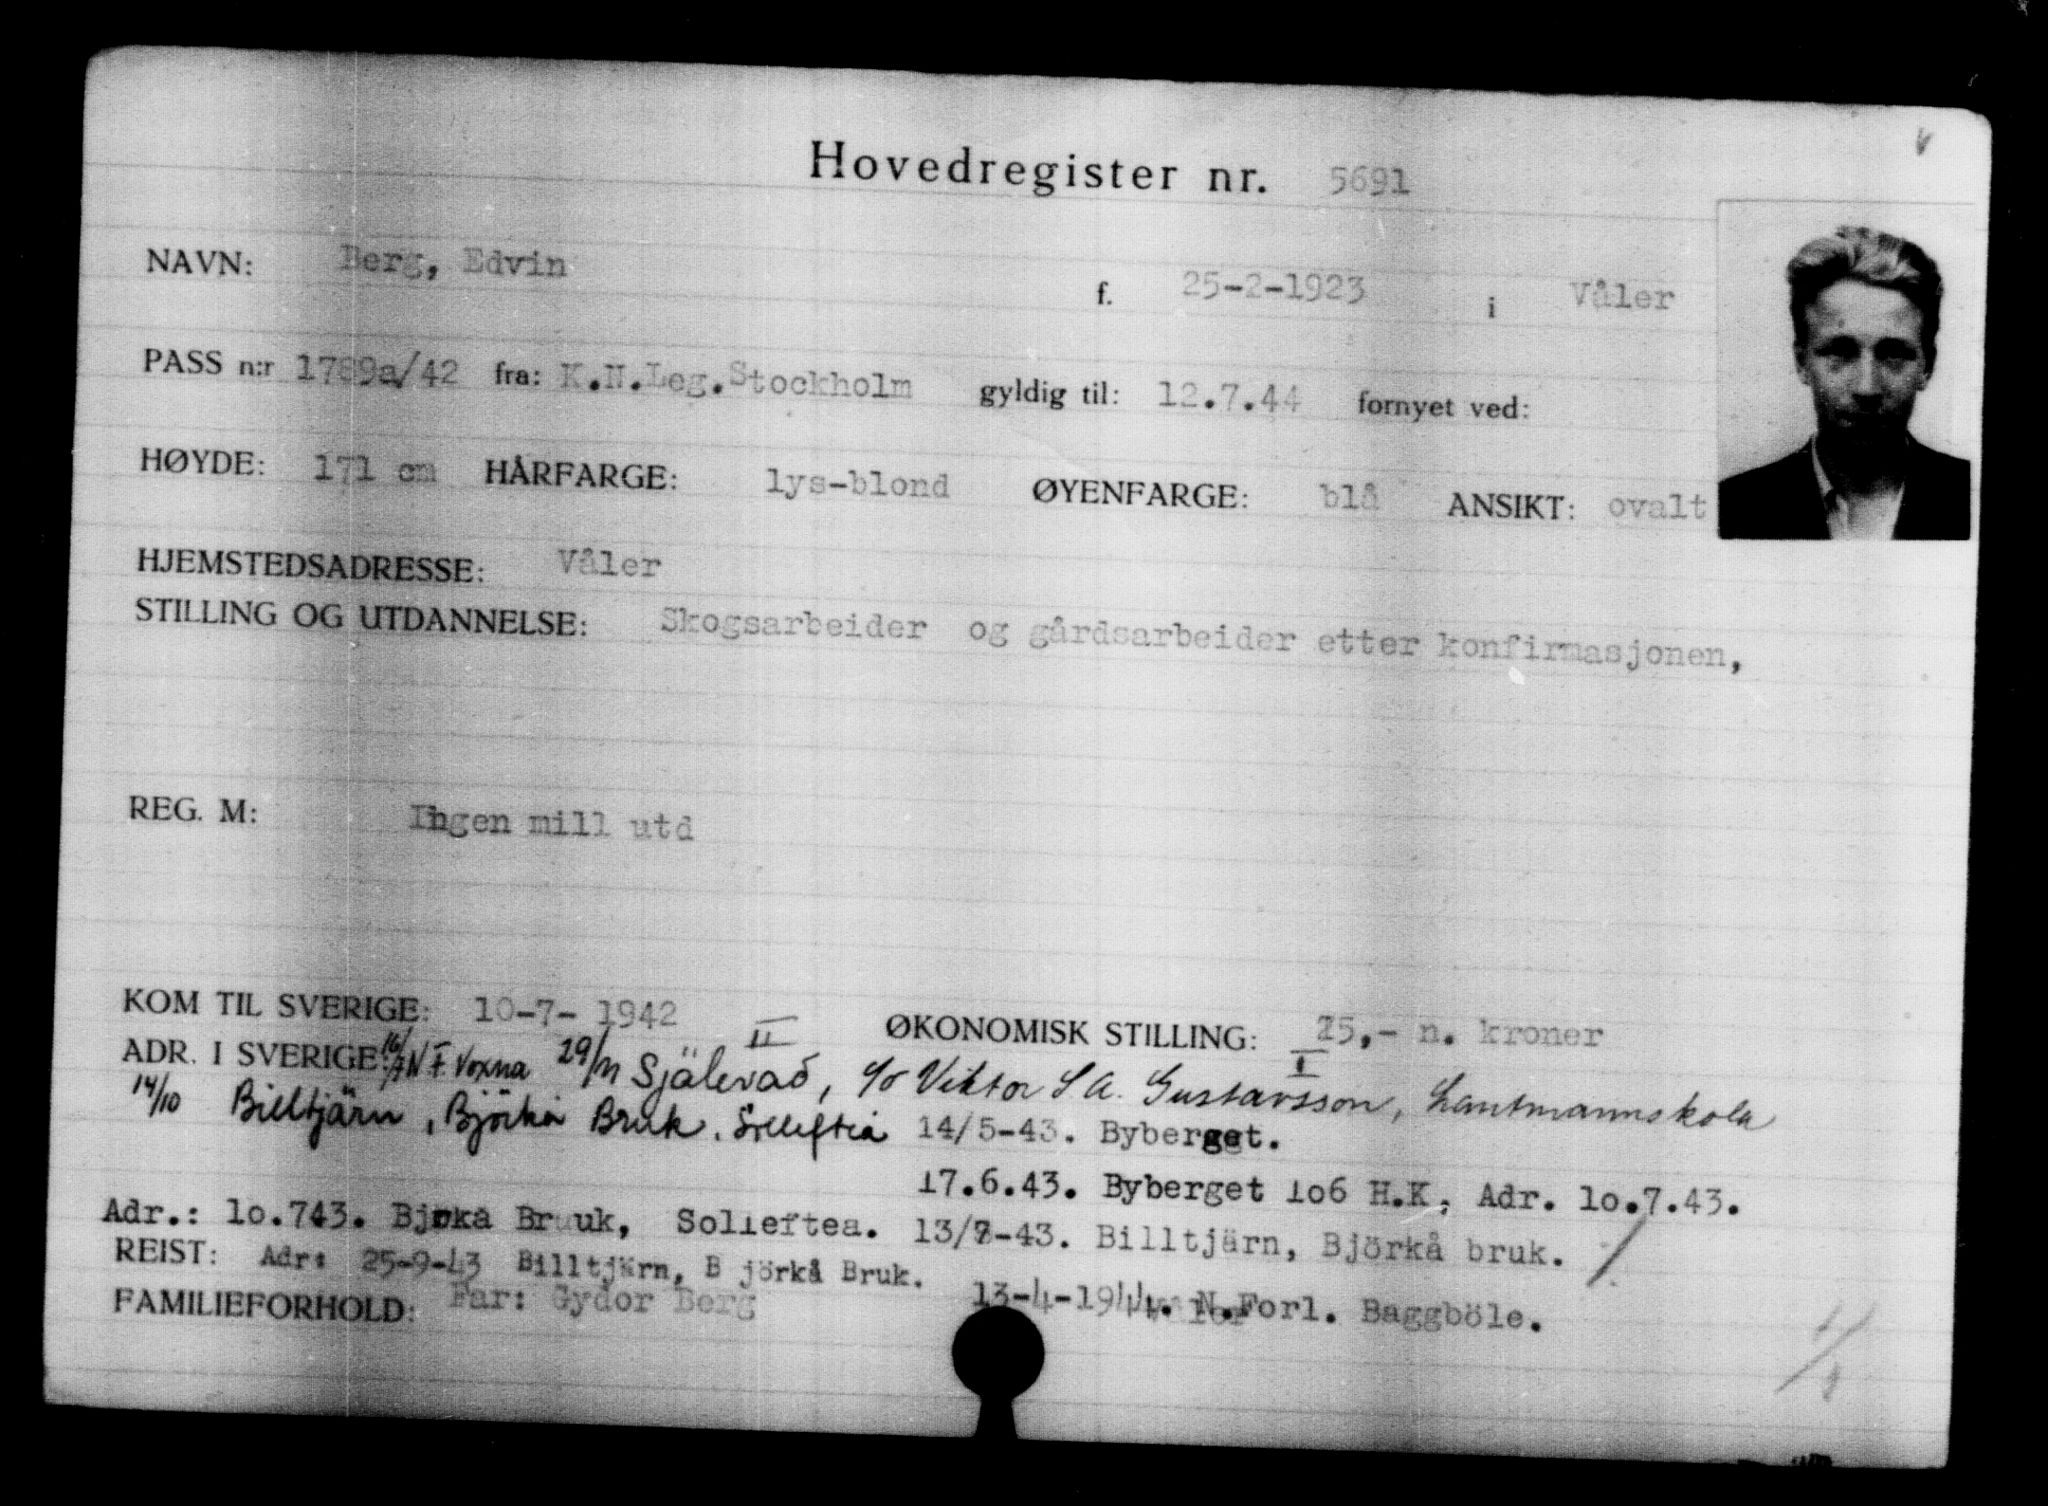 Hovedregister nr. 5691
NAVN: Berg, Edvin f. 25-2-1923 i Våler
PASS n:r 1789a/42 fra: K.N.Leg.Stockholm gyldig til: 12.7.44 fornyet ved:
HØYDE: 171 cm HÅRFARGE: lys-blond ØYENFARGE: blå ANSIKT: ovalt
HJEMSTEDSADRESSE: Våler
STILLING OG UTDANNELSE: Skogsarbeider og gårdsarbeider etter konfirmasjonen,
REG. M: Ingen mill utd
KOM TIL SVERIGE: 10-7- 1942 II ØKONOMISK STILLING: 75,- n. kroner
ADR. I SVERIGE: N F Voxna 29/11 Själevad, c/o Viktor S. A. Gustavsson, Lantmannskola I
14/10 Billtjärn, Björkå Bruk, Sollefteå 14/5-43. Byberget.
17.6.43. Byberget 1o6 H.K, Adr. 1o.7.43.
Adr.: 1o.743. Bjrka Bruuk, Sollefteå. 13/8-43. Billtjärn, Björkå bruk.
REIST: Adr: 25-9-43 Billtjärn, B jörkå Bruk.
FAMILIEFORHOLD: Far: Gydor Berg 13-4-1944. N.Forl. Baggböle.